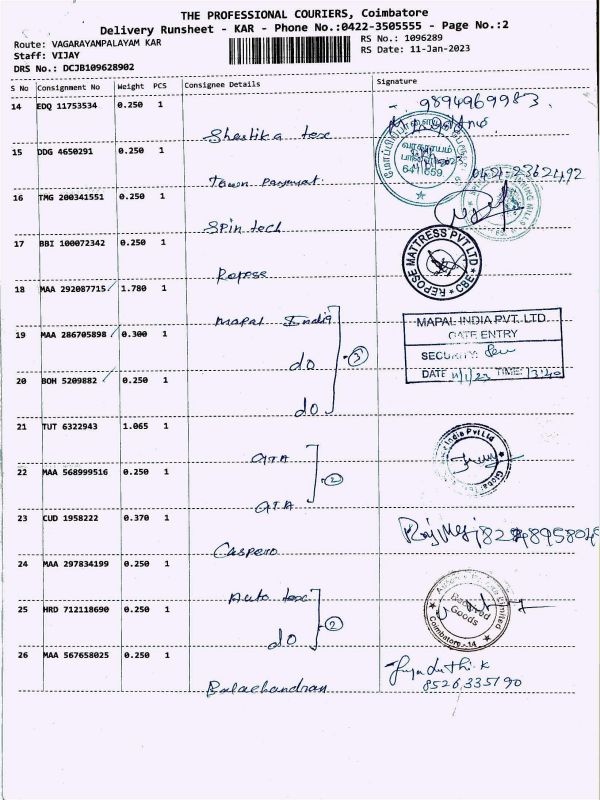 THE PROFESSIONAL COURIERS, Coimbatore
Delivery Runsheet - KAR - Phone No.:0422-3505555 - Page No.:2
Route: VAGARAYAMPALAYAM KAR
RS No.: 1096289
Staff: VIJAY
RS Date: 11-Jan-2023
DRS No.: DCJB109628902
S No Consignment No Weight PCS Consignee Details Signature
14 EDQ 11753534 0.250 1
9894969983
Shostika tex
15 DDG 4650291 0.250 1
வாகராயம்
641 659
Town Payment
0421-2362492
16 TMG 200341551 0.250 1
Spin tech
17 BBI 100072342 0.250 1
Repose
REPOSE MATTRESS PVT LTD * CBE *
18 MAA 292087715 1.780 1
Mapal India
MAPAL INDIA PVT. LTD
GATE ENTRY
19 MAA 286705898 0.300 1
do
3
SECURITY:
DATE 11/1/23 TIME: 13:40
20 BOH 5209882 0.250 1
do
21 TUT 6322943 1.065 1
GTA
India Pvt Ltd
22 MAA 568999516 0.250 1
2
GTA
23 CUD 1958222 0.370 1
Caspero
24 MAA 297834199 0.250 1
Auto tex
25 HRD 712118690 0.250 1
do
2
Received
Goods
Coimbatore - 14
26 MAA 567658025 0.250 1
Balachandran
8526335190